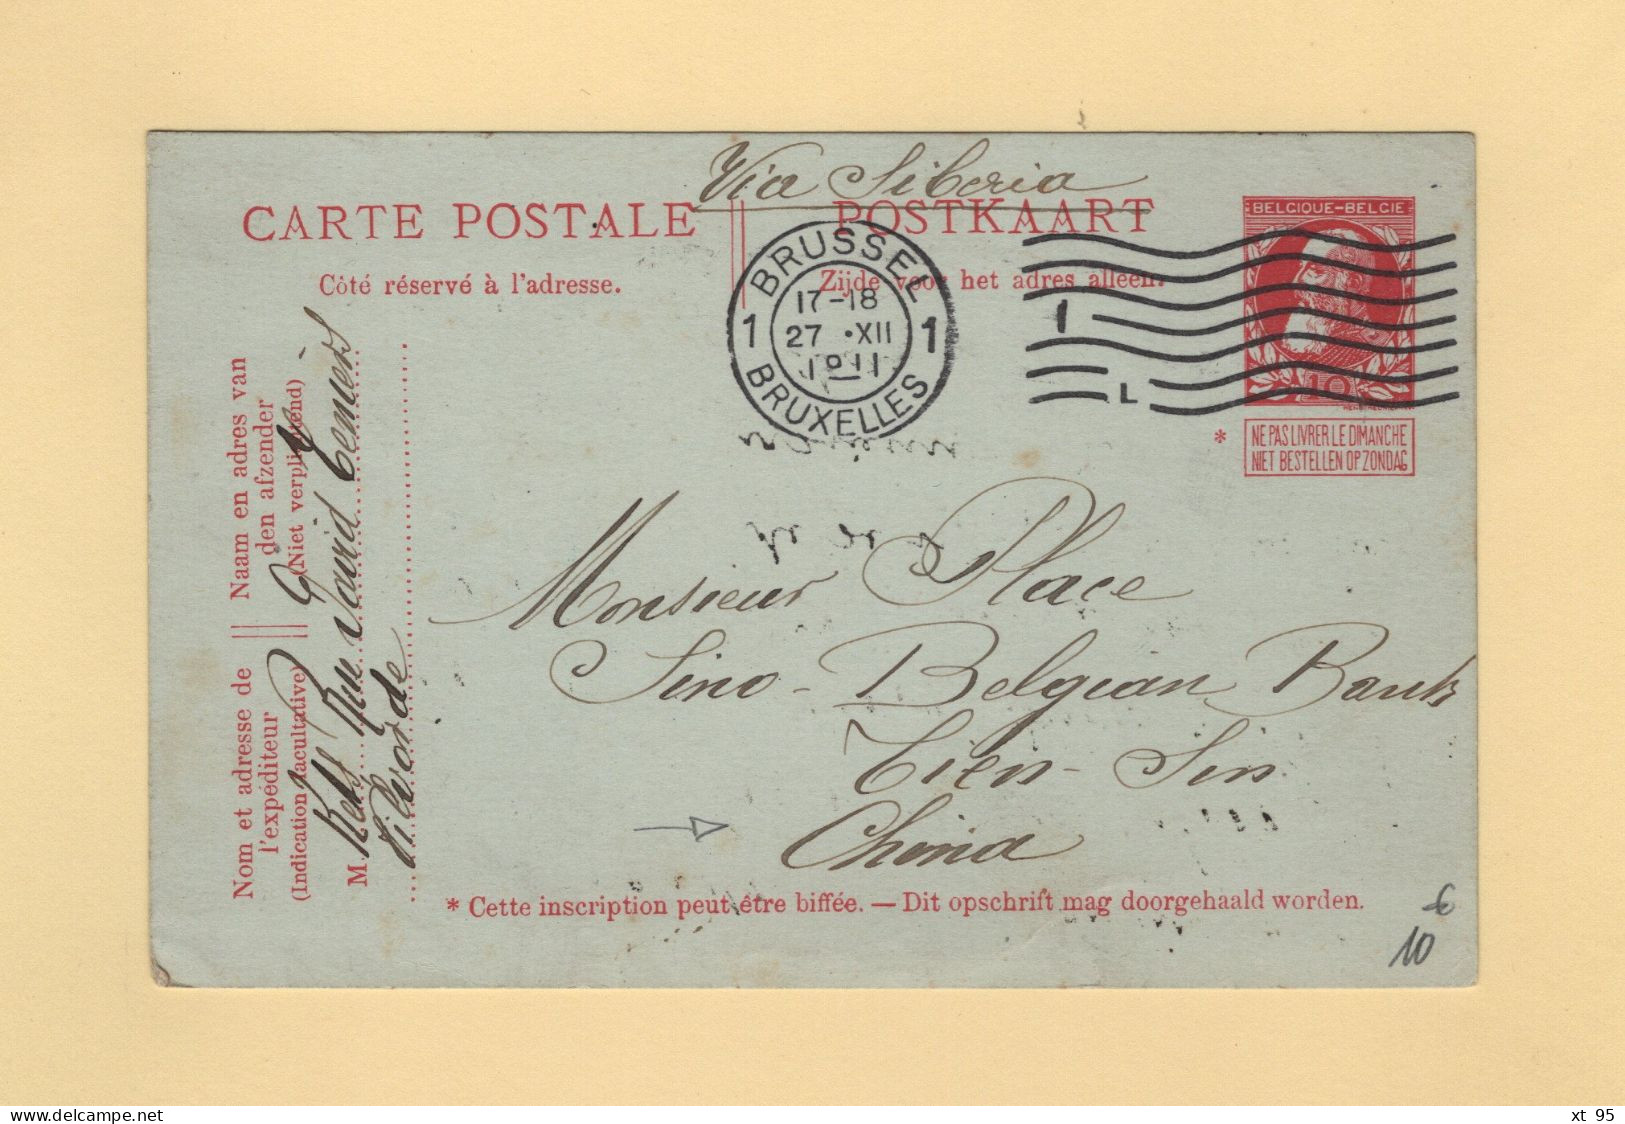 Via Siberia
CARTE POSTALE
POSTKAART
Côté réservé à l'adresse.
Zijde voor het adres alleen.
BELGIQUE-BELGIE
10
NE PAS LIVRER LE DIMANCHE
NIET BESTELLEN OP ZONDAG
*
BRUSSEL
17-18
1 27 •XII 1
1911
BRUXELLES
1
L
Naam en adres van
den afzender
(Niet verplichtend)
Nom et adresse de
l'expéditeur
(Indication facultative)
M.
Vilvorde
Monsieur Place
Sino-Belgian Bank
Tien-Sin
China
* Cette inscription peut être biffée. — Dit opschrift mag doorgehaald worden.
10
xt 95